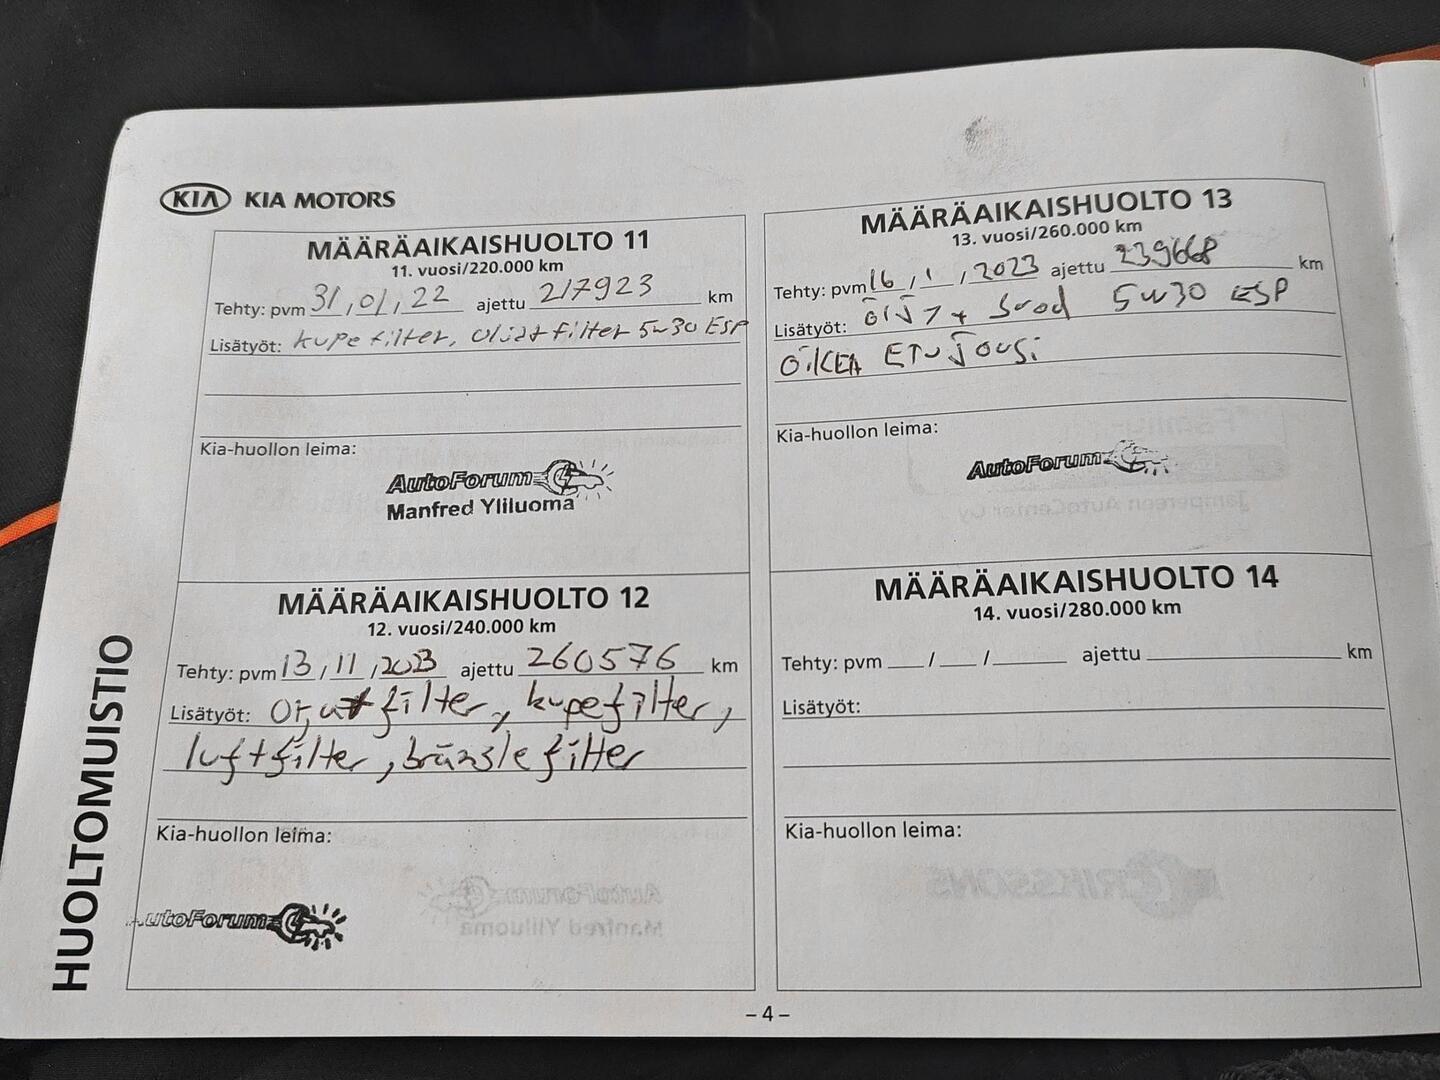 KIA KIA MOTORS
MÄÄRÄAIKAISHUOLTO 11
11. vuosi/220.000 km
Tehty: pvm 31/01/22 ajettu 217923 km
Lisätyöt: kupefilter, filter 5w30 ESP
Kia-huollon leima:
AutoForum
Manfred Yliluoma
MÄÄRÄAIKAISHUOLTO 12
12. vuosi/240.000 km
Tehty: pvm 13/11/2023 ajettu 260576 km
Lisätyöt: filter, kupefilter,
luftfilter, bränslefilter
Kia-huollon leima:
AutoForum
MÄÄRÄAIKAISHUOLTO 13
13. vuosi/260.000 km
Tehty: pvm 16/1/2023 ajettu 239668 km
Lisätyöt: ÖIJY + 5w30 ESP
OIKEA ETUJOUSi
Kia-huollon leima:
AutoForum
MÄÄRÄAIKAISHUOLTO 14
14. vuosi/280.000 km
Tehty: pvm ___/___/______ ajettu ______ km
Lisätyöt:
Kia-huollon leima:
HUOLTOMUISTIO
– 4 –